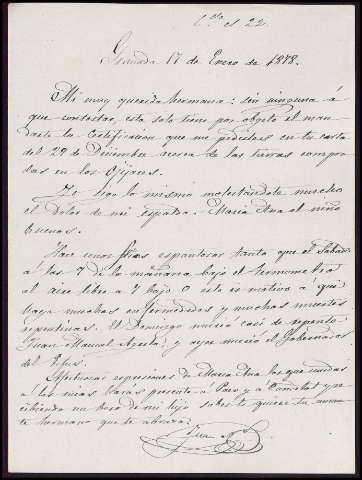 Cda el 22.
Granada 17 de Enero de 1878.
Mi muy querida hermana: sin ninguna á
que contestar, esta solo tiene por objeto el man
darte la Certificacion que me pedistes en tu carta
del 29 de Diciembre acerca de las tierras compra
das en los Ojijares.
Yo sigo lo mismo molestandote mucho
el Dolor de mi espalda. Maria Ana el niño
buenos.
Hace unos frios espantosos tanto que el Sabado
á las 7 de la mañana bajó el termometro
al aire libre a 7 bajo 0 esto es motivo a que
haya muchas enfermedades y muchas muertes
repentinas. El Domingo murió casi de repente
Juan Manuel y ayer murió el Gobernador
del Tifus.
Afectuosas espresiones de Maria Ana las que unidas
á las mias harás presente a Paco y a y re
cibiendo un beso de mi hijo sabes te quiere tu
te hermano que te abraza:
Juan